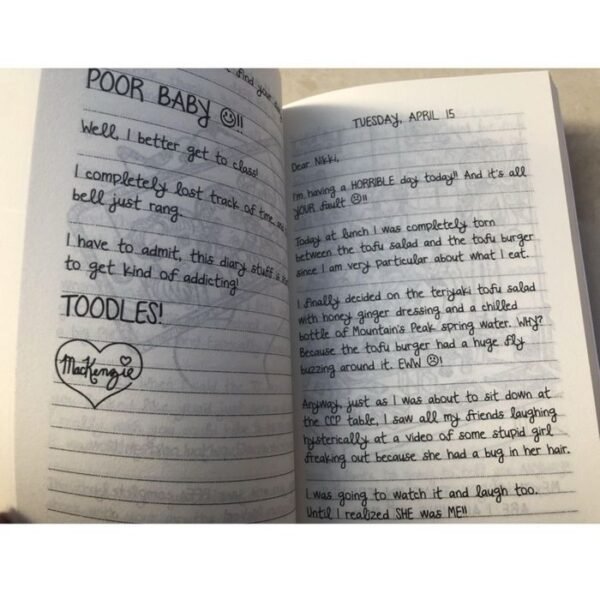 find your
POOR BABY ☺!!
Well I better get to class!
I completely lost track of time and
bell just rang.
I have to admit, this diary stuff is
to get kind of addicting!
TOODLES!
MacKenzie
TUESDAY, APRIL 15
Dear Nikki,
I'm having a HORRIBLE day today!! And it's all
YOUR fault ☹!!
Today at lunch I was completely torn
between the tofu salad and the tofu burger
since I am very particular about what I eat.
I finally decided on the teriyaki tofu salad
with honey ginger dressing and a chilled
bottle of Mountain's Peak spring water. WHY?
Because the tofu burger had a huge fly
buzzing around it. EWW ☹!
Anyway, just as I was about to sit down at
the CCP table, I saw all my friends laughing
hysterically at a video of some stupid girl
freaking out because she had a bug in her hair.
I was going to watch it and laugh too.
Until I realized SHE was ME!!